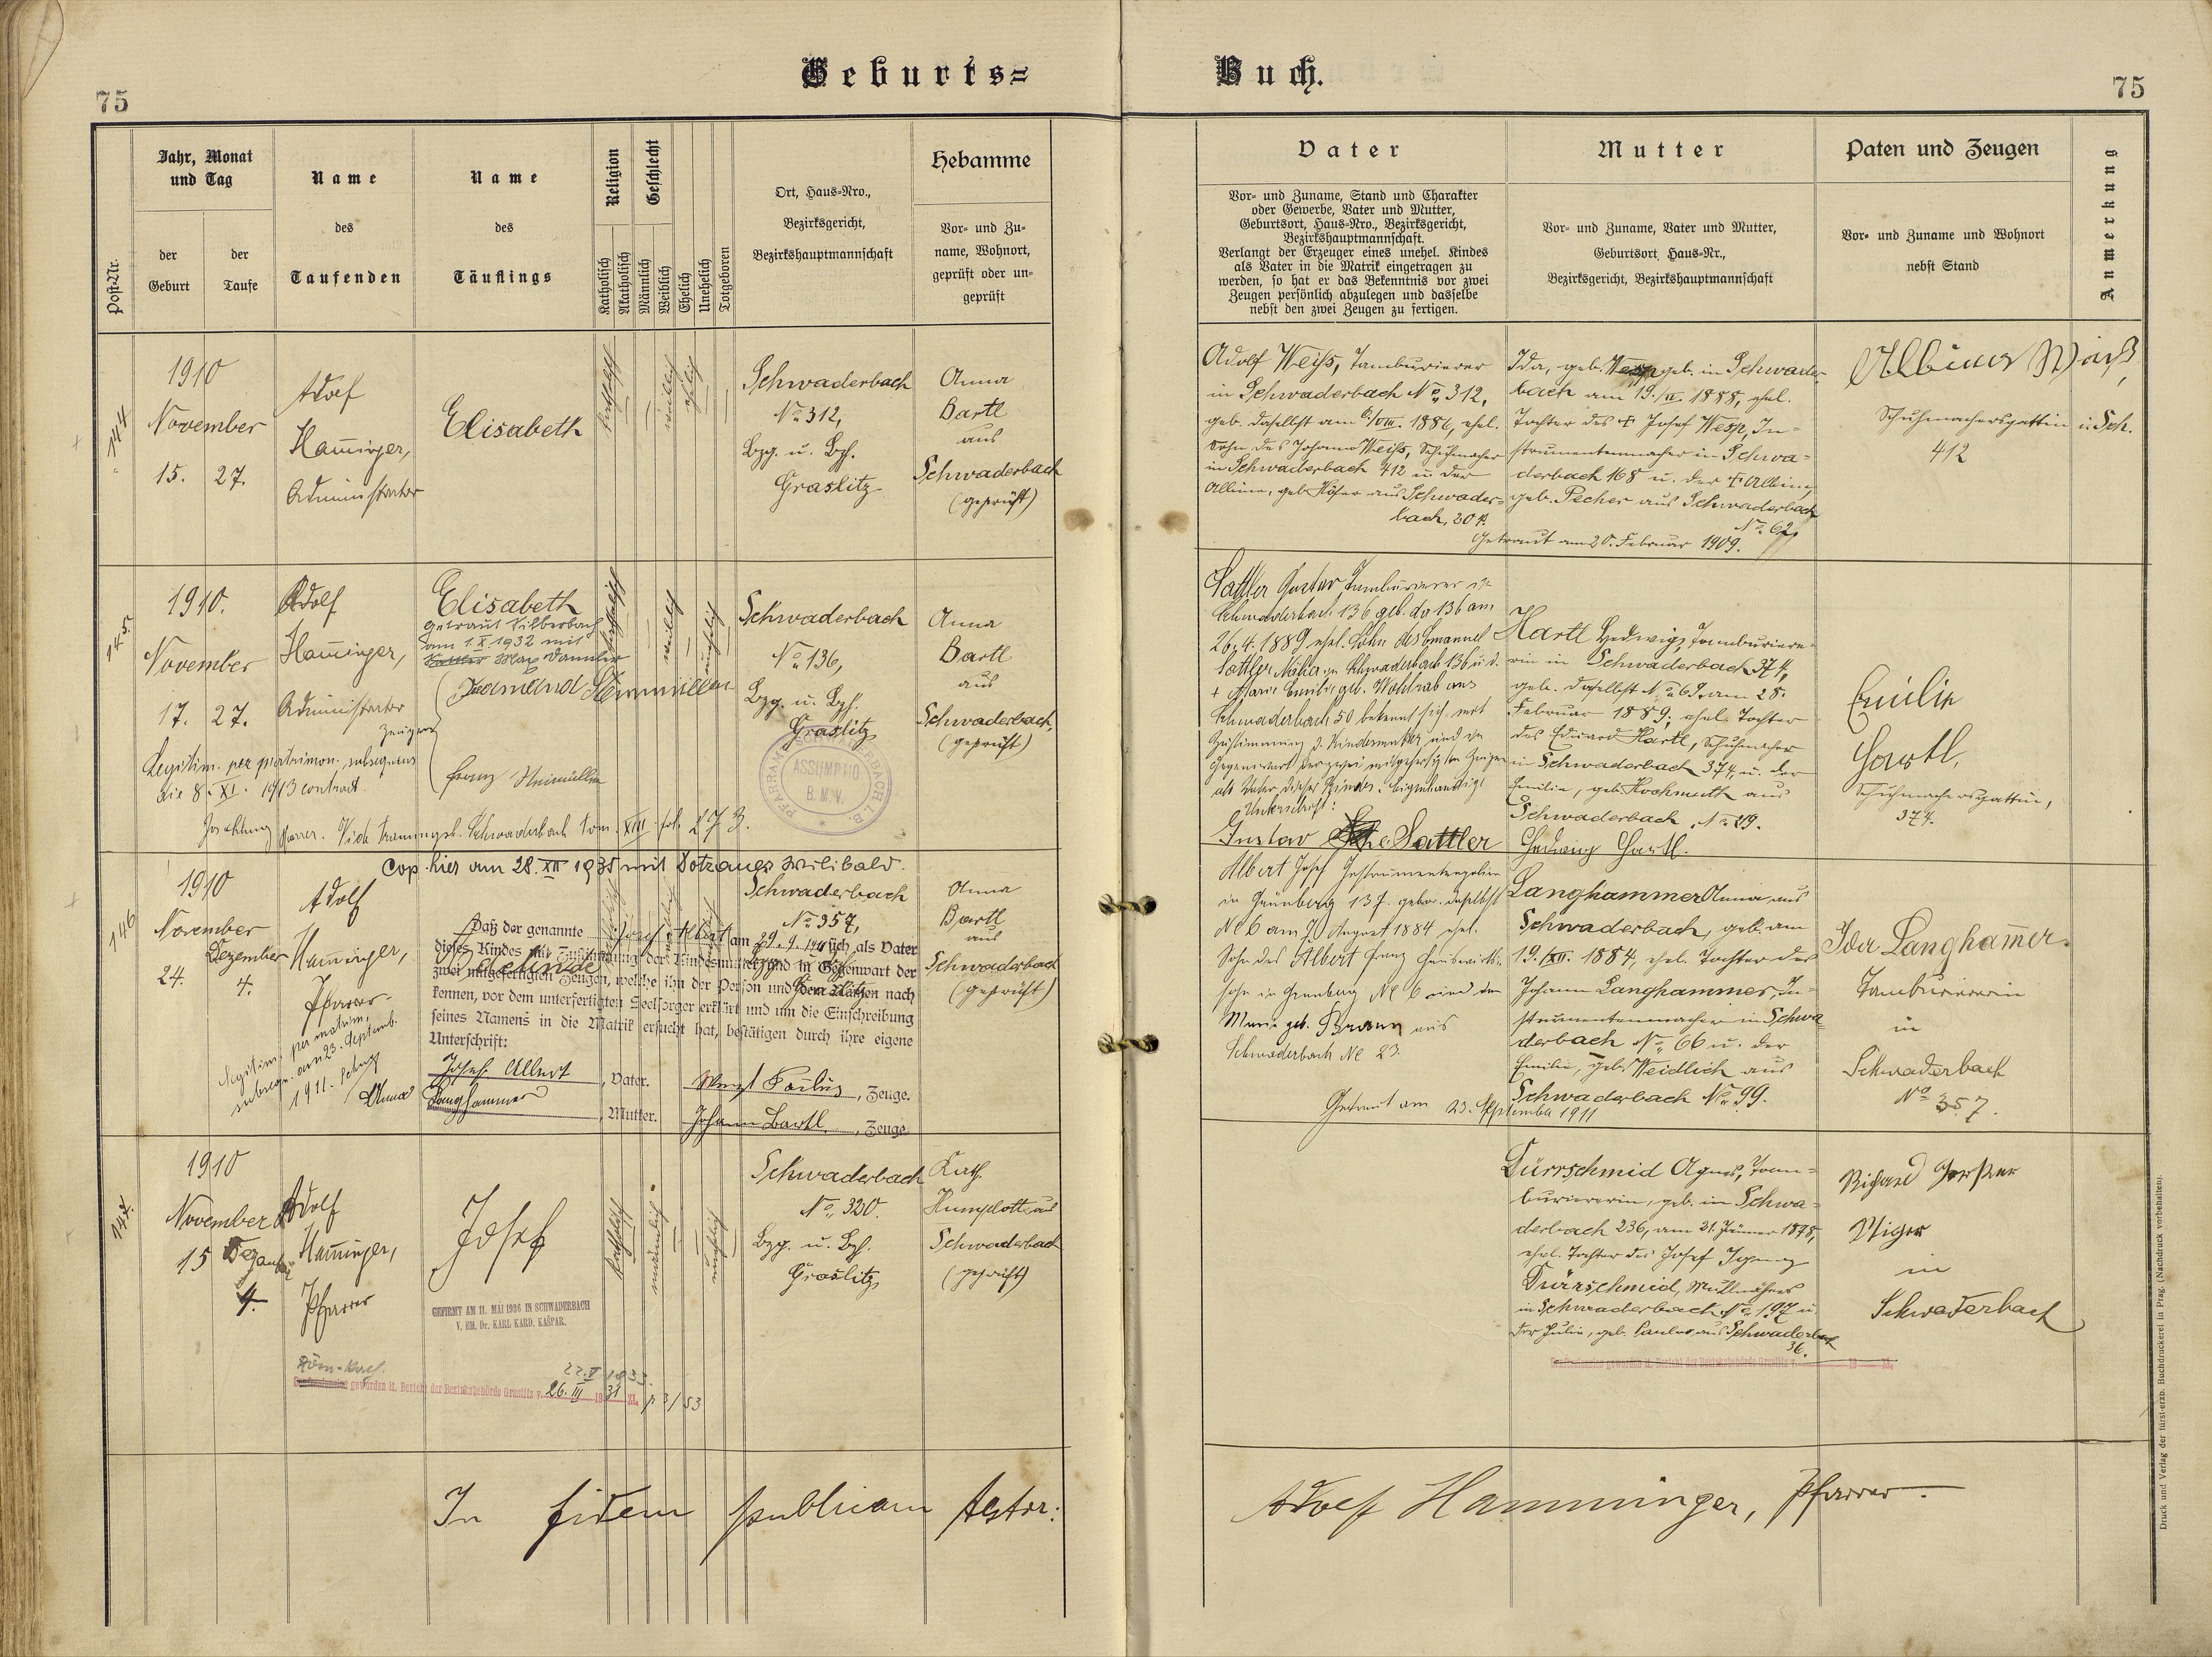 Geburts=
Buch.
75
75
Post-Nr.
Jahr, Monat
und Tag
der
Geburt
der
Taufe
Name
des
Taufenden
Name
des
Täuflings
Religion
Katholisch
Akatholisch
Geschlecht
Männlich
Weiblich
Ehelich
Unehelich
Totgeboren
Ort, Haus-Nro.,
Bezirksgericht,
Bezirkshauptmannschaft
Hebamme
Vor- und Zu-
name, Wohnort,
geprüft oder un-
geprüft
Vater
Vor- und Zuname, Stand und Charakter
oder Gewerbe, Vater und Mutter,
Geburtsort, Haus-Nro., Bezirksgericht,
Bezirkshauptmannschaft.
Verlangt der Erzeuger eines unehel. Kindes
als Vater in die Matrik eingetragen zu
werden, so hat er das Bekenntnis vor zwei
Zeugen persönlich abzulegen und dasselbe
nebst den zwei Zeugen zu fertigen.
Mutter
Vor- und Zuname, Vater und Mutter,
Geburtsort, Haus-Nr.,
Bezirksgericht, Bezirkshauptmannschaft
Paten und Zeugen
Vor- und Zuname und Wohnort
nebst Stand
Anmerkung
144
1910
November
15. 27.
Adolf
Ham̄inger,
Administrator
Elisabeth
katholisch
weiblich
ehelich
Schwaderbach
No 312,
Bzg. u. Bzh.
Graslitz
Anna
Bartl
aus
Schwaderbach
(geprüft)
Adolf Weiß, Tamburierer
in Schwaderbach No 312,
geb. daselbst am 6./VIII. 1886, ehel.
Sohn des Johann Weiß, Schuhmacher
in Schwaderbach 412 u. der
Albine, geb. Höfer aus Schwader=
bach, 201.
Ida, geb. Wesp geb. in Schwader-
bach am 19./II. 1888, ehel.
Tochter des † Josef Wesp, In=
strumentenmacher in Schwa=
derbach 168 u. der † Albine,
geb. Pecher aus Schwaderbach
No 62.
Getraut am 20. Februar 1909.
Albine Weiß,
Schuhmachersgattin in Sch.
412
145.
1910.
November
17. 27.
Adolf
Ham̄inger,
Administrator
Elisabeth
getraut Silberbach
am 1.X.1932 mit
Max Dannler
Zeugen
Franz Steinmüller
Legitim. per matrimon. subsequens
die 8. XI. 1913 contract.
Pfarrer. Vide Trauungsb. Schwaderbach tom. XIII fol. 273.
katholisch
weiblich
unehelich
Schwaderbach
No 136,
Bzg. u. Bzh.
Graslitz
ASSUMPTIO
B. M. V.
Anna
Bartl
aus
Schwaderbach,
(geprüft)
Sattler Gustav, Tamburierer in
Schwaderbach 136 geb. do 136 am
26. 4. 1889 ehel. Sohn des Emanuel
Sattler, Musiker in Schwaderbach 136 u. d.
† Marie Emilie geb. Wohlrab aus
Schwaderbach 50 bekennt sich mit
Zustimmung d. Kindesmutter und in
Gegenwart der zwei mitgefertigten Zeugen
als Vater dieses Kindes. Eigenhändige
Unterschrift:
Gustav Sattler
Hartl Hedwig, Tamburiere=
rin in Schwaderbach 374,
geb. daselbst No 69 am 28.
Februar 1889; ehel. Tochter
des Eduard Hartl, Schuhmacher
in Schwaderbach 374, u. der
Emilie, geb. Hochmuth aus
Schwaderbach, No 29.
Hedwig Hartl.
Emilie
Hartl,
Schuhmachersgattin,
374.
Cop. hier am 28. XII 1935 mit Dotzauer Wilibald.
146
1910
November
Dezember
24. 4.
Adolf
Ham̄inger,
Pfarrer
Legitim. per matrim.
subsequ. am 23. Septemb.
1911.
Adelinde
Daß der genannte Josef Albert am 29. 9. 1911 sich als Vater
dieses Kindes mit Zustimmung der Kindesmutter und in Gegenwart der
zwei mitgefertigten Zeugen, welche ihn der Person und dem Namen nach
kennen, vor dem unterfertigten Seelsorger erklärt und um die Einschreibung
seines Namens in die Matrik ersucht hat, bestätigen durch ihre eigene
Unterschrift:
Josef Albert, Vater. Wenzl Paulus, Zeuge.
Anna Langhammer, Mutter. Johann Bartl, Zeuge
Schwaderbach
No 357,
Graslitz
Anna
Bartl
aus
Schwaderbach
(geprüft)
Albert Josef Instrumentengehilfe
in Grünberg 137. gebor. daselbst
No 6 am 9. August 1884 ehel.
Sohn des Albert Franz Hauswirts=
sohn in Grünberg No 6 und der
Marie geb. Braun aus
Schwaderbach No 23.
Getraut am 23. September 1911
Langhammer Anna, aus
Schwaderbach, geb. am
19. /XII. 1884, ehel. Tochter des
Johann Langhammer, In=
strumentenmacher in Schwa=
derbach No 66 u. der
Emilie, geb. Weidlich aus
Schwaderbach No 99.
Ida Langham̄er
Tamburiererin
in
Schwaderbach
No 357.
147.
1910
November
15 Dezember
4.
Adolf
Ham̄inger,
Pfarrer
Josef
GEFIRMT AM 11. MAI 1936 IN SCHWADERBACH
V. EM. Dr. KARL KARD. KAŠPAR.
Röm.-kath.
22. V 1933.
Konfessionslos geworden lt. Bericht der Bezirksbehörde Graslitz v. 26. III 1931 Zl. 3/53
katholisch
männlich
unehelich
Schwaderbach
No 320.
Bzg. u. Bzh.
Graslitz
Kath.
Schwaderbach
(geprüft)
Dürrschmid Agnes, Tam=
buriererin, geb. in Schwa=
derbach 236, am 21. Jänner 1878,
ehel. Tochter des Josef Ignaz
Dürrschmid,
in Schwaderbach No 197 u.
der Julie, geb. Paulus aus Schwaderbach
36.
Konfessionslos geworden lt. Bericht der Bezirksbehörde Graslitz v. 19 Zl.
Richard
in
Schwaderbach
In fidem publicam testor:
Adolf Hamminger, Pfarrer.
Druck und Verlag der fürst-erzb. Buchdruckerei in Prag. (Nachdruck vorbehalten).